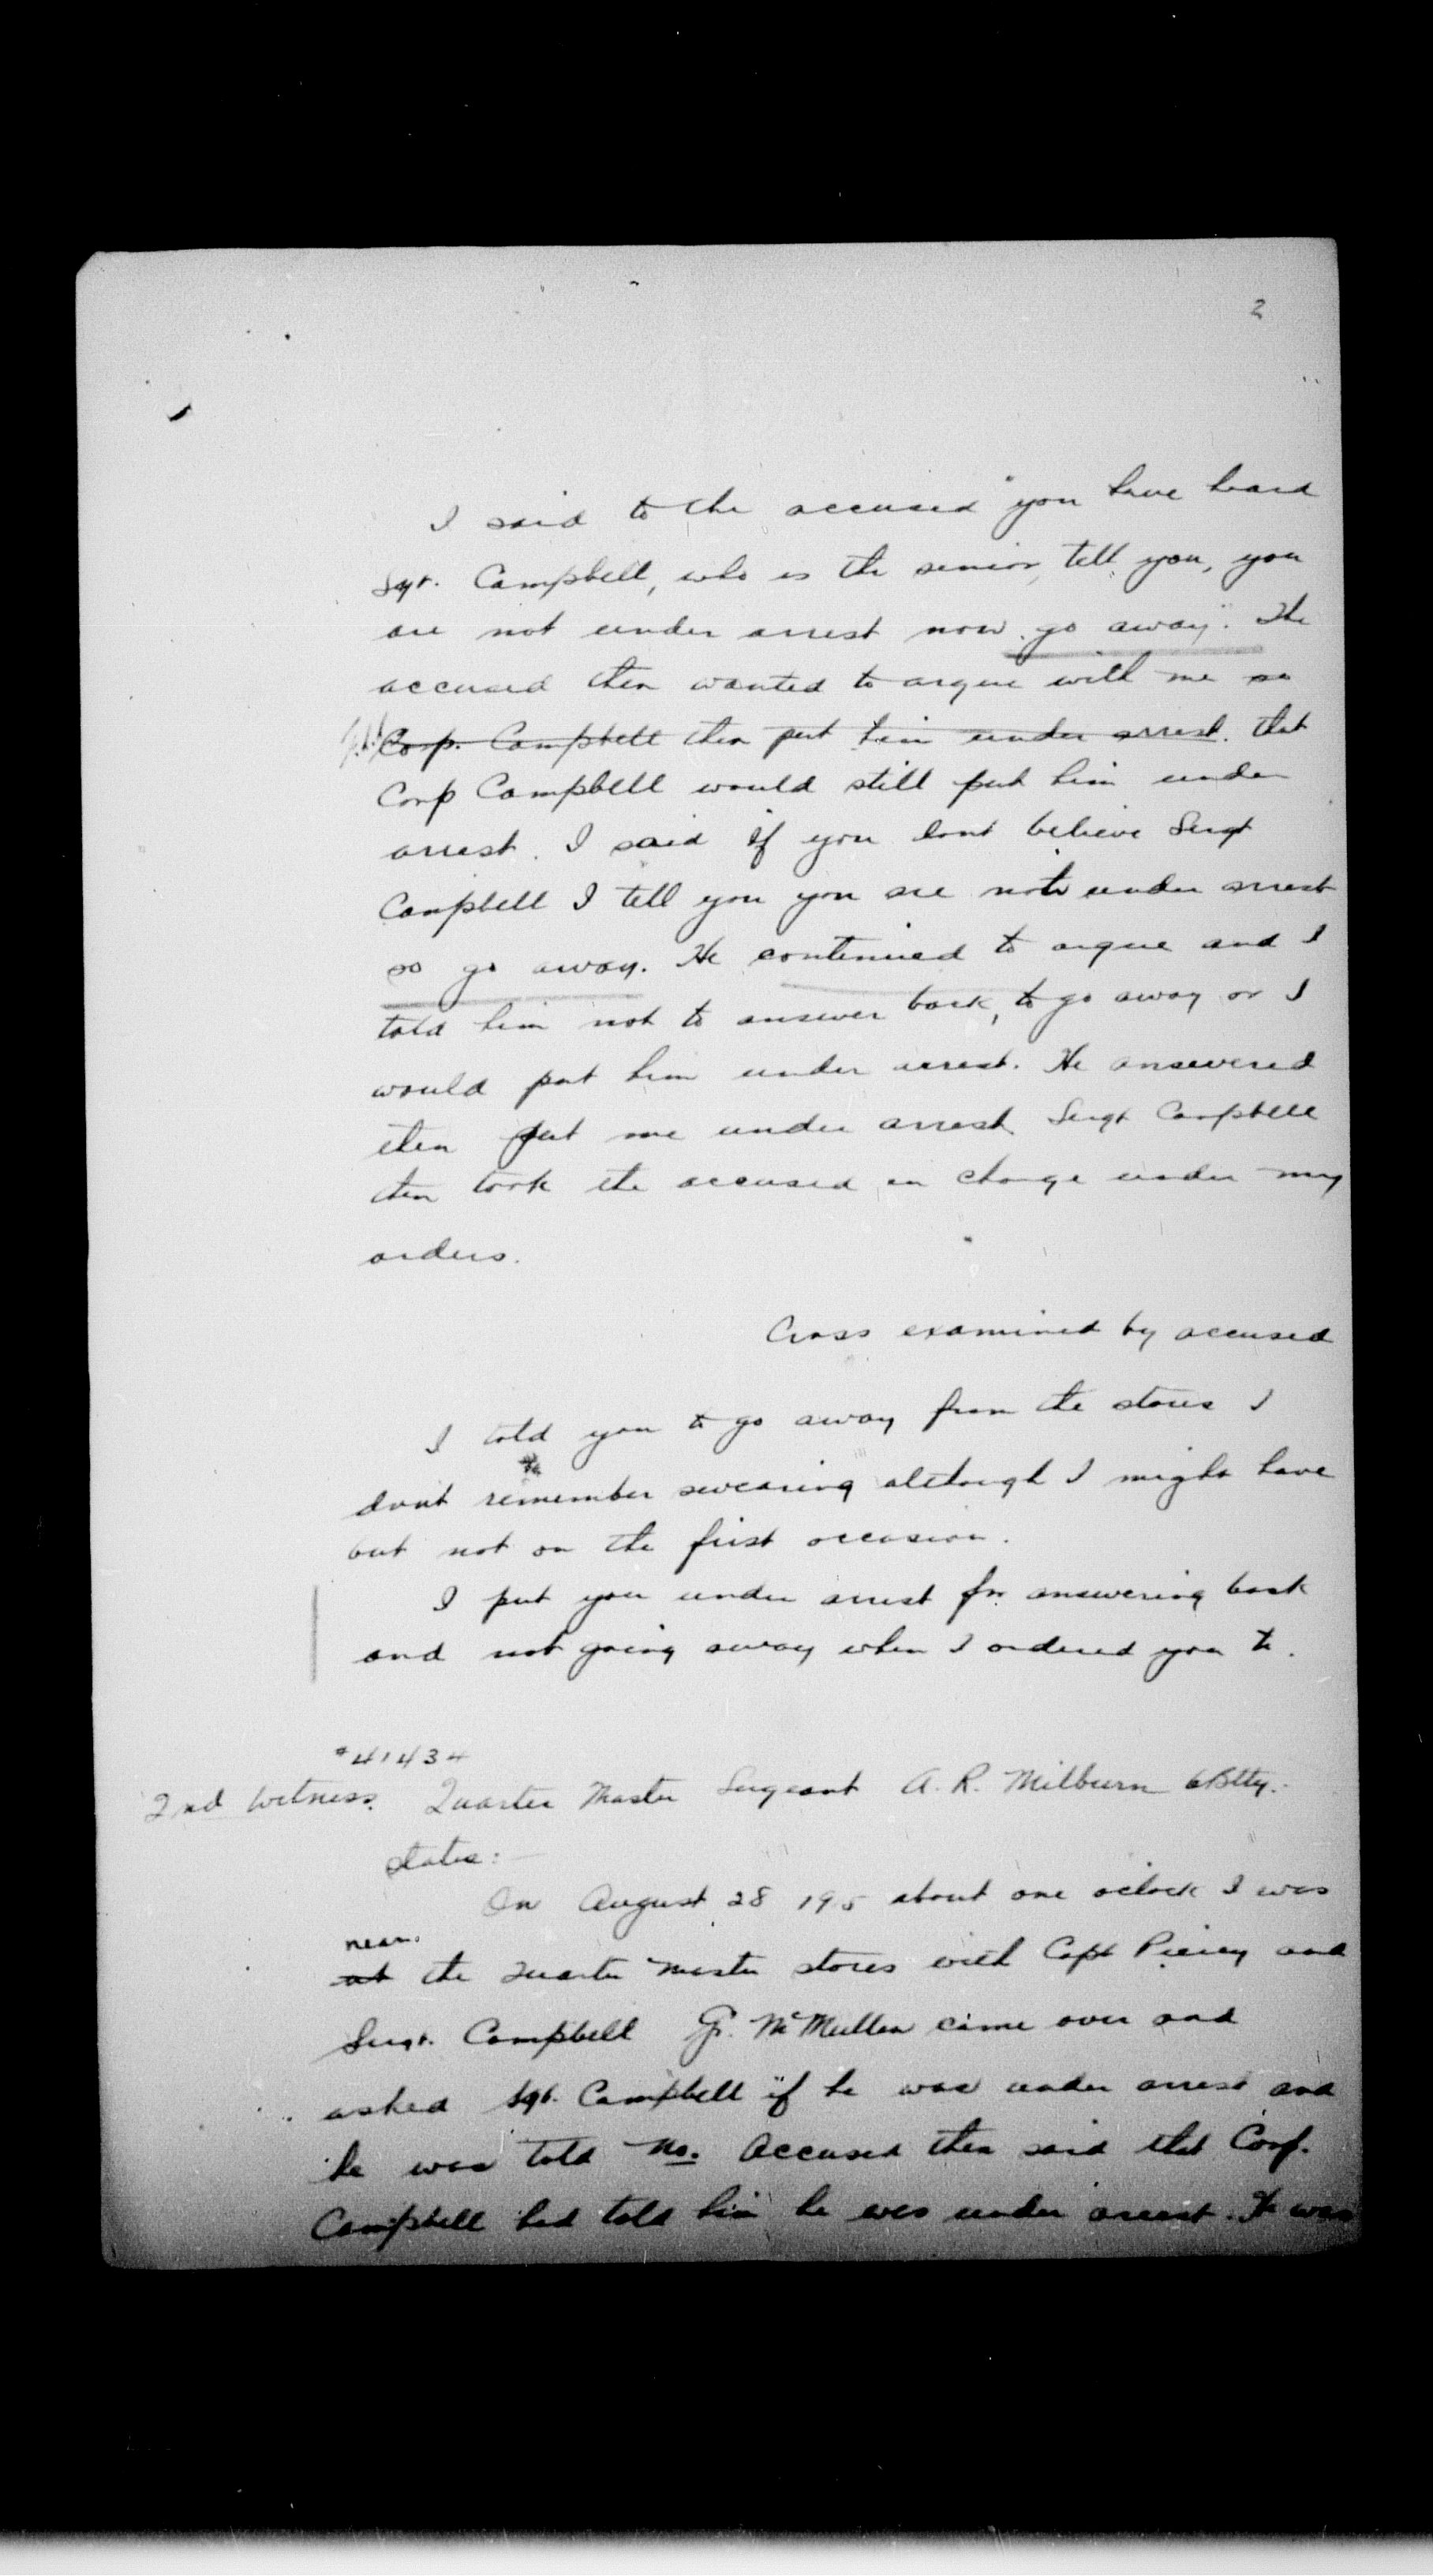 2
I said to the accused "you have heard
Sgt. Campbell, who is the senior, tell you, you
are not under arrest now go away". The
accused then wanted to argue with me so
Corp. Campbell then put him under arrest. that
Corp Campbell would still put him under
arrest. I said if you dont believe Sergt
Campbell I tell you you are not under arrest
so go away. He continued to argue and I
told him not to answer back, to go away or I
would put him under arrest. He answered
then put me under arrest Sergt Campbell
then took the accused in charge under my
orders.
Cross examined by accused
I told you to go away from the stores I
dont remember swearing although I might have
but not on the first occasion.
I put you under arrest for answering back
and not going away when I ordered you to.
#41434
2nd Witness. Quarter Master Sergeant A. R. Milburn 6Btty.
States:-
On August 28 1915 about one oclock I was
near
at the Quarter Master stores with Capt Piercy and
Sergt. Campbell Gr. McMullen came over and
asked Sgt. Campbell if he was under arrest and
he was told No. Accused then said that Corp.
Campbell had told him he was under arrest. He was